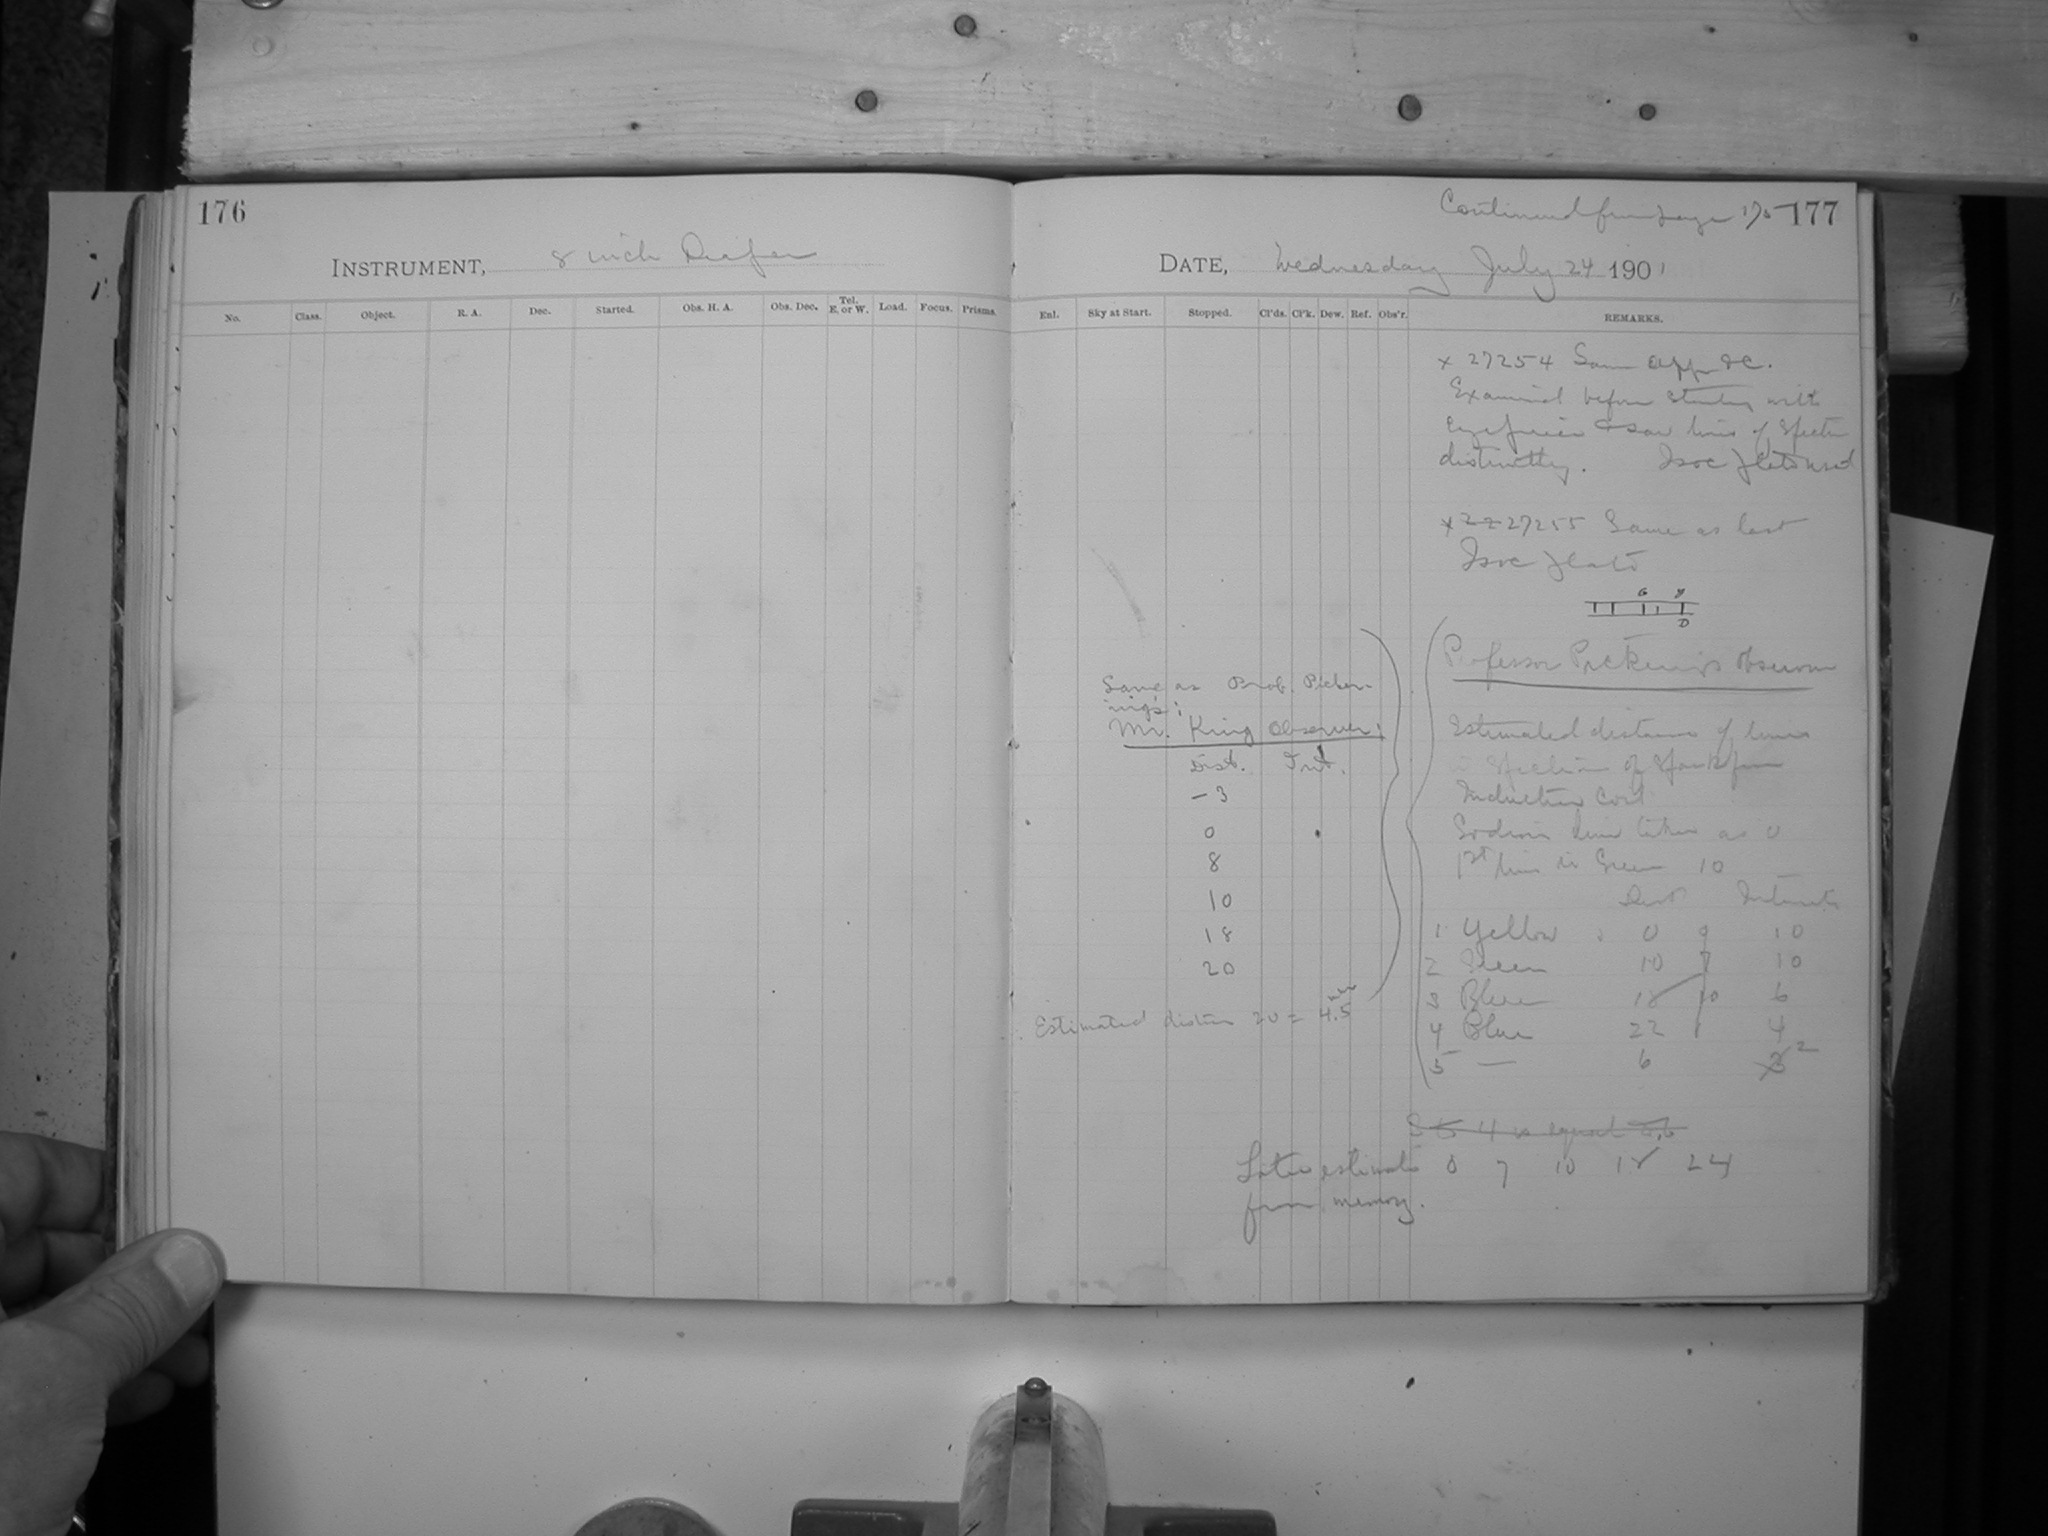 176
INSTRUMENT, 8 inch Draper
No. Class. Object. R. A. Dec. Started. Obs. H. A. Obs. Dec. Tel. E. or W. Load. Focus. Prisms.
Continued from page 175 177
DATE, Wednesday July 24 1901
Enl. Sky at Start. Stopped. Cl'ds. Cl'k. Dew. Ref. Obs'r. REMARKS.
x 27254 Same App &c.
Examined before starting with
eyepiece & saw lines of spectra
distinctly. Isoc plate used
x 27255 Same as last
Isoc plate
G D
Professor Pickering Observer
Estimated distance of lines
in spectrum of spark from
Induction Coil
Sodium line taken as 0
1st line in Green 10
Dist Intensity
1 Yellow 0 9 10
2 Green 10 7 10
3 Blue 18 10 6
4 Blue 22 4
5 — 6 3 2
4 is equal
Later estimate 0 7 10 18 24
from memory.
Same as Prof. Picker-
ing's;
Mr. King Observer;
Dist. Int.
- 3
0
8
10
18
20
Estimated distan 20 = 4.5